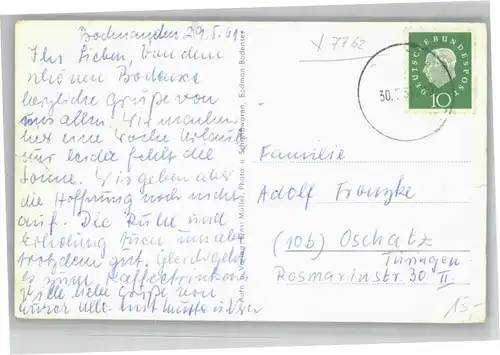 Bodman den 29.5.61
Ihr Lieben, Von dem
schönen Bodensee
herzliche Grüße von
uns allen. Wir machen
hier eine Woche Urlaub
nur leider fehlt die
Sonne. Wir geben aber
die Hoffnung noch nicht
auf. Die Ruhe und
Erholung tuen uns aber
trotzdem gut. Gleich geht
es zum Kaffeetrinken
Viele liebe Grüße von
Eurer mit Mutti u.
Verlag Ernst Müller, Photo u. Schreibwaren, Bodman Bodensee
7762
DEUTSCHE BUNDESPOST
10
30.
Familie
Adolf Franzke
(10b) Oschatz
Türingen
Rosmarinstr. 30 II.
15,-